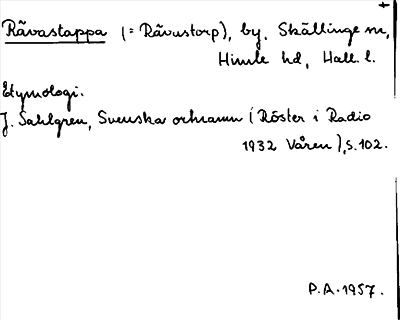 +
Rävastappa (= Rävastorp), by, Skällinge sn,
Himle hd, Hall. l.
Etymologi.
J. Sahlgren, Svenska ortnamn (Röster i Radio
1932 Våren), s. 102.
P.A. 1957.